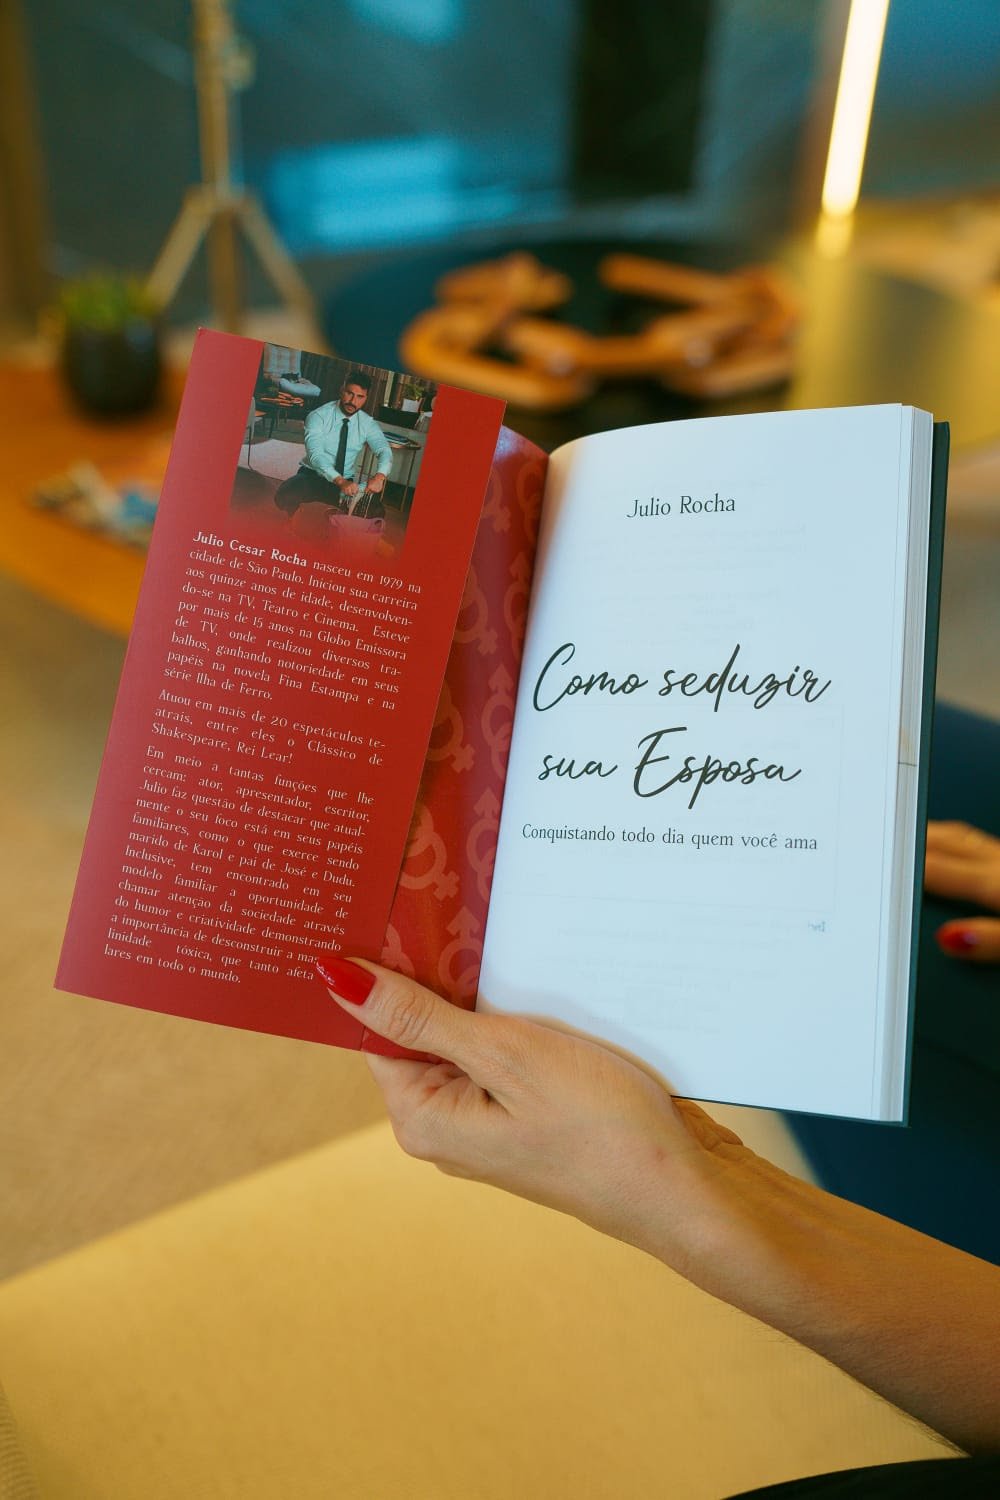 Julio Cesar Rocha nasceu em 1979 na
cidade de São Paulo. Iniciou sua carreira
aos quinze anos de idade, desenvolven-
do-se na TV, Teatro e Cinema. Esteve
por mais de 15 anos na Globo Emissora
de TV, onde realizou diversos tra-
balhos, ganhando notoriedade em seus
papéis na novela Fina Estampa e na
série Ilha de Ferro.
Atuou em mais de 20 espetáculos te-
atrais, entre eles o Clássico de
Shakespeare, Rei Lear!
Em meio a tantas funções que lhe
cercam: ator, apresentador, escritor,
Julio faz questão de destacar que atual-
mente o seu foco está em seus papéis
familiares, como o que exerce sendo
marido de Karol e pai de José e Dudu.
Inclusive, tem encontrado em seu
modelo familiar a oportunidade de
chamar atenção da sociedade através
do humor e criatividade demonstrando
a importância de desconstruir a mas
linidade tóxica, que tanto afeta
lares em todo o mundo.
Julio Rocha
Como seduzir
sua Esposa
Conquistando todo dia quem você ama